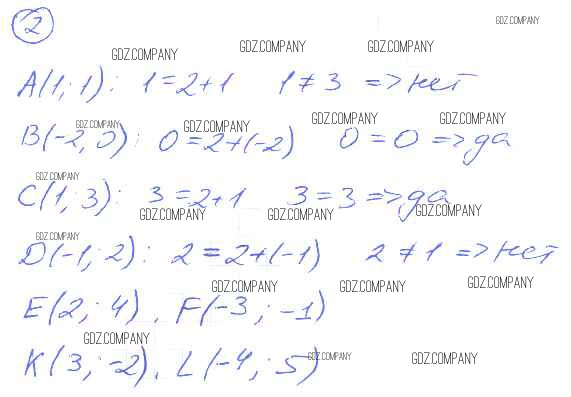 2
GDZ.COMPANY
GDZ.COMPANY GDZ.COMPANY GDZ.COMPANY
A(1; 1): 1=2+1 1≠3 => нет
GDZ.COMPANY GDZ.COMPANY GDZ.COMPANY GDZ.COMPANY
B(-2; 0): 0=2+(-2) 0=0 => да
GDZ.COMPANY
C(1; 3): 3=2+1 3=3 => да
GDZ.COMPANY GDZ.COMPANY GDZ.COMPANY
GDZ.COMPANY
D(-1; 2): 2=2+(-1) 2≠1 => нет
GDZ.COMPANY GDZ.COMPANY GDZ.COMPANY
E(2; 4), F(-3; -1)
GDZ.COMPANY
K(3; -2), L(-4; 5)
GDZ.COMPANY GDZ.COMPANY